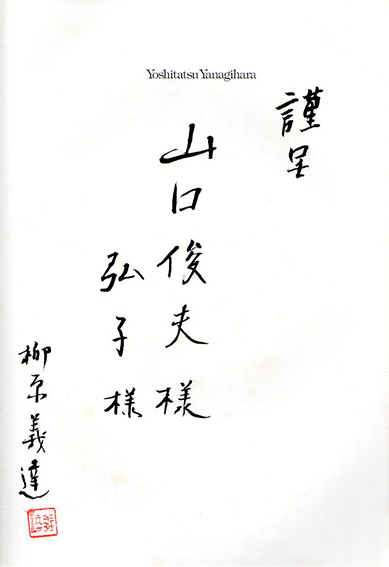 Yoshitatsu Yanagihara
謹呈
山口俊夫様
弘子様
柳原義達